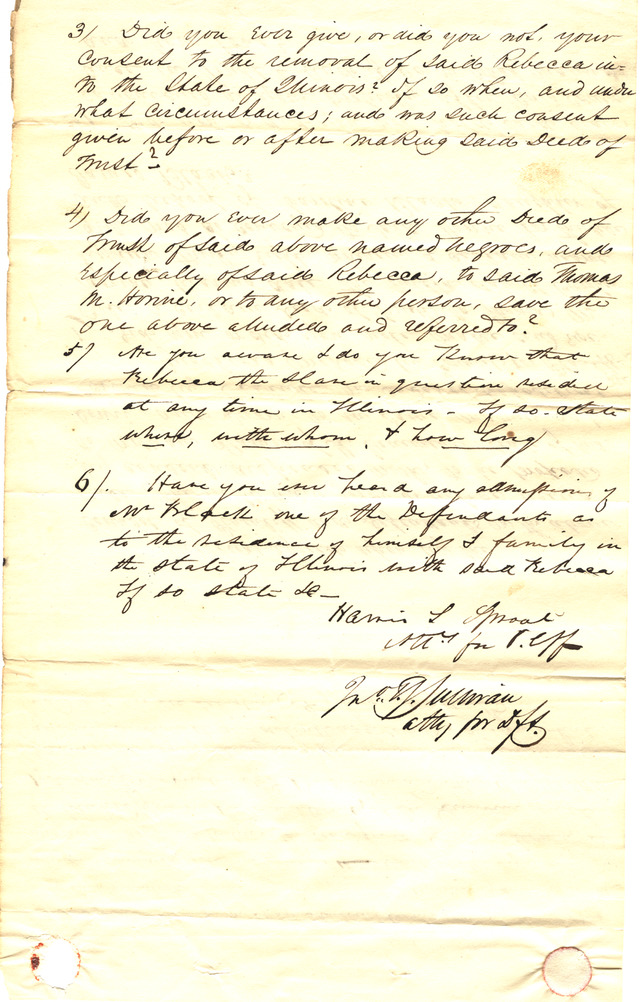 3) Did you Ever give, or did you not, your
consent to the removal of said Rebecca in=
to the State of Illinois? If so when, and under
what circumstances; and was such consent
given before or after making said Deed of
Trust?
4) Did you Ever make any other Deed of
Trust of said above named negroes, and
Especially of said Rebecca, to said Thomas
M. Horine, or to any other person, save the
one above alluded and referred to?
5) Are you aware & do you Know that
Rebecca the slave in question resided
at any time in Illinois - If so state
where, with whom & how long
6). Have you ever heard any admission of
Mr Black one of the Defendants as
to the residence of himself & family in
the state of Illinois with said Rebecca
If so state &c -
Harris & Sproat
Attys for Plff
Jno. D. Sullivan
atty for Dft.